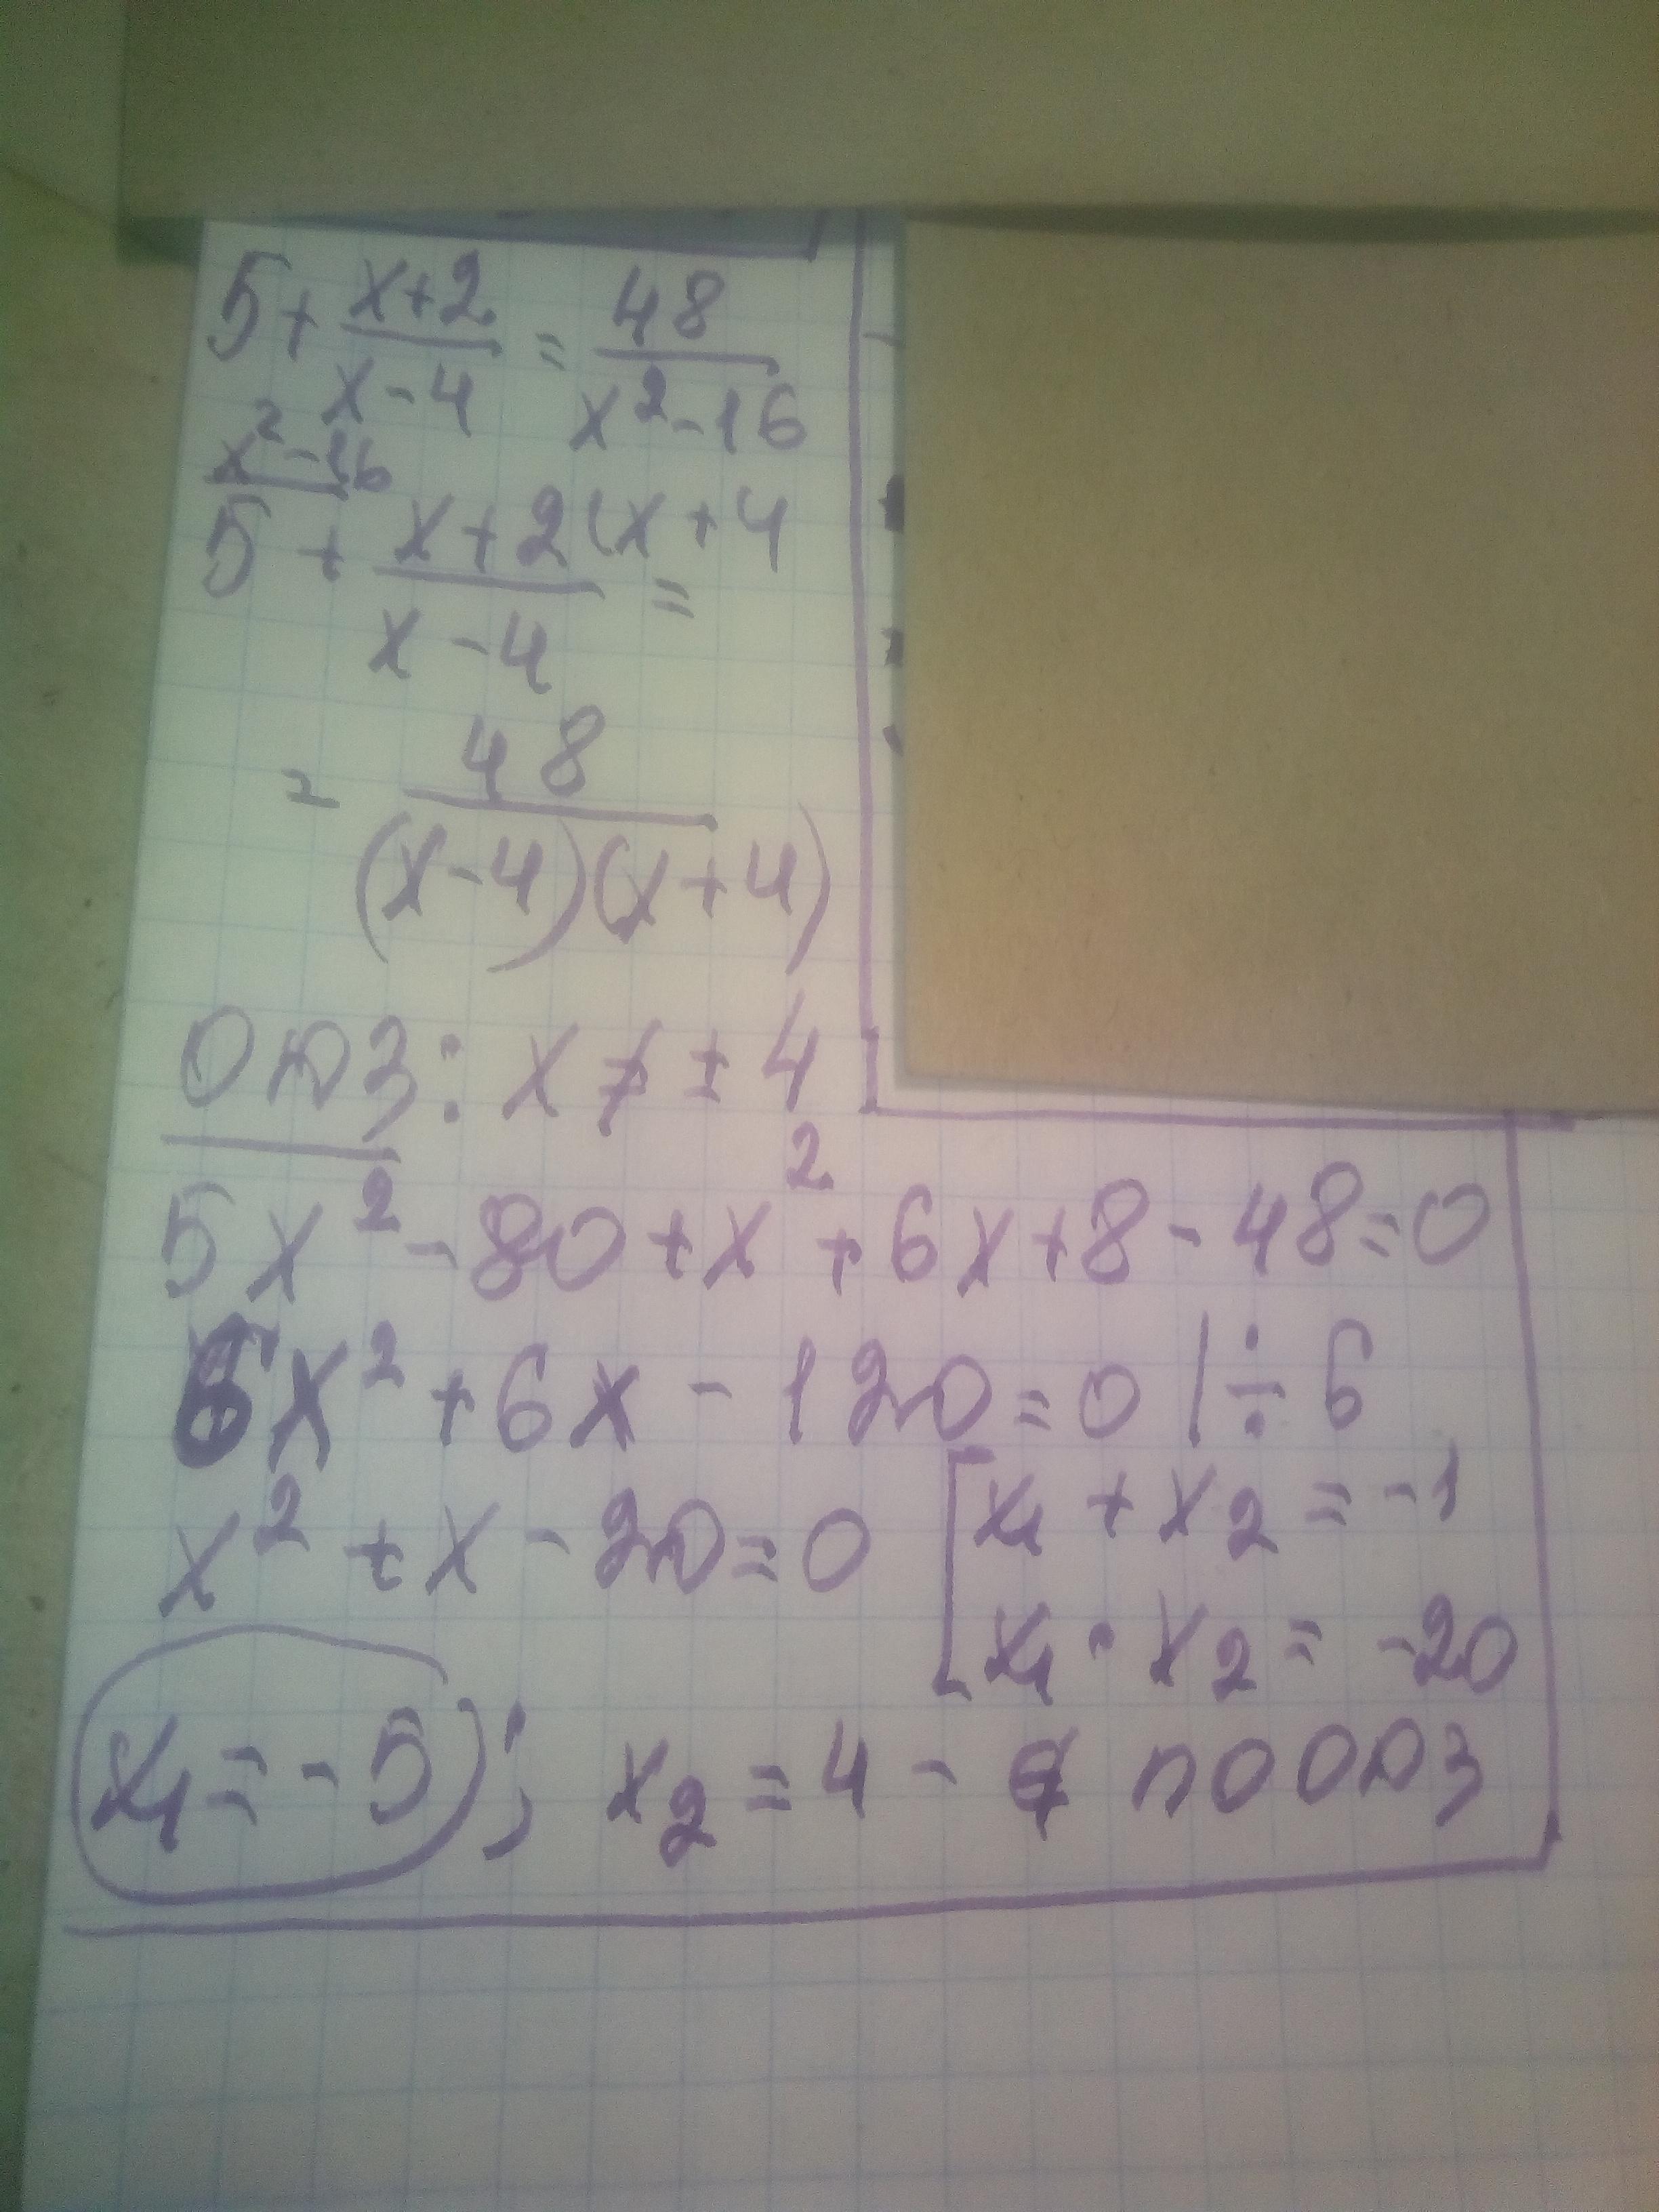 5 + (x+2)/(x-4) = 48/(x²-16)
x²-16
5 + (x+2(x+4)/(x-4) =
= 48/((x-4)(x+4))
ОДЗ: x ≠ ± 4
5x² - 80 + x² + 6x + 8 - 48 = 0
6x² + 6x - 120 = 0 | ÷ 6
x² + x - 20 = 0 [ x₁ + x₂ = -1
x₁ · x₂ = -20
x₁ = -5 ; x₂ = 4 - по ОДЗ